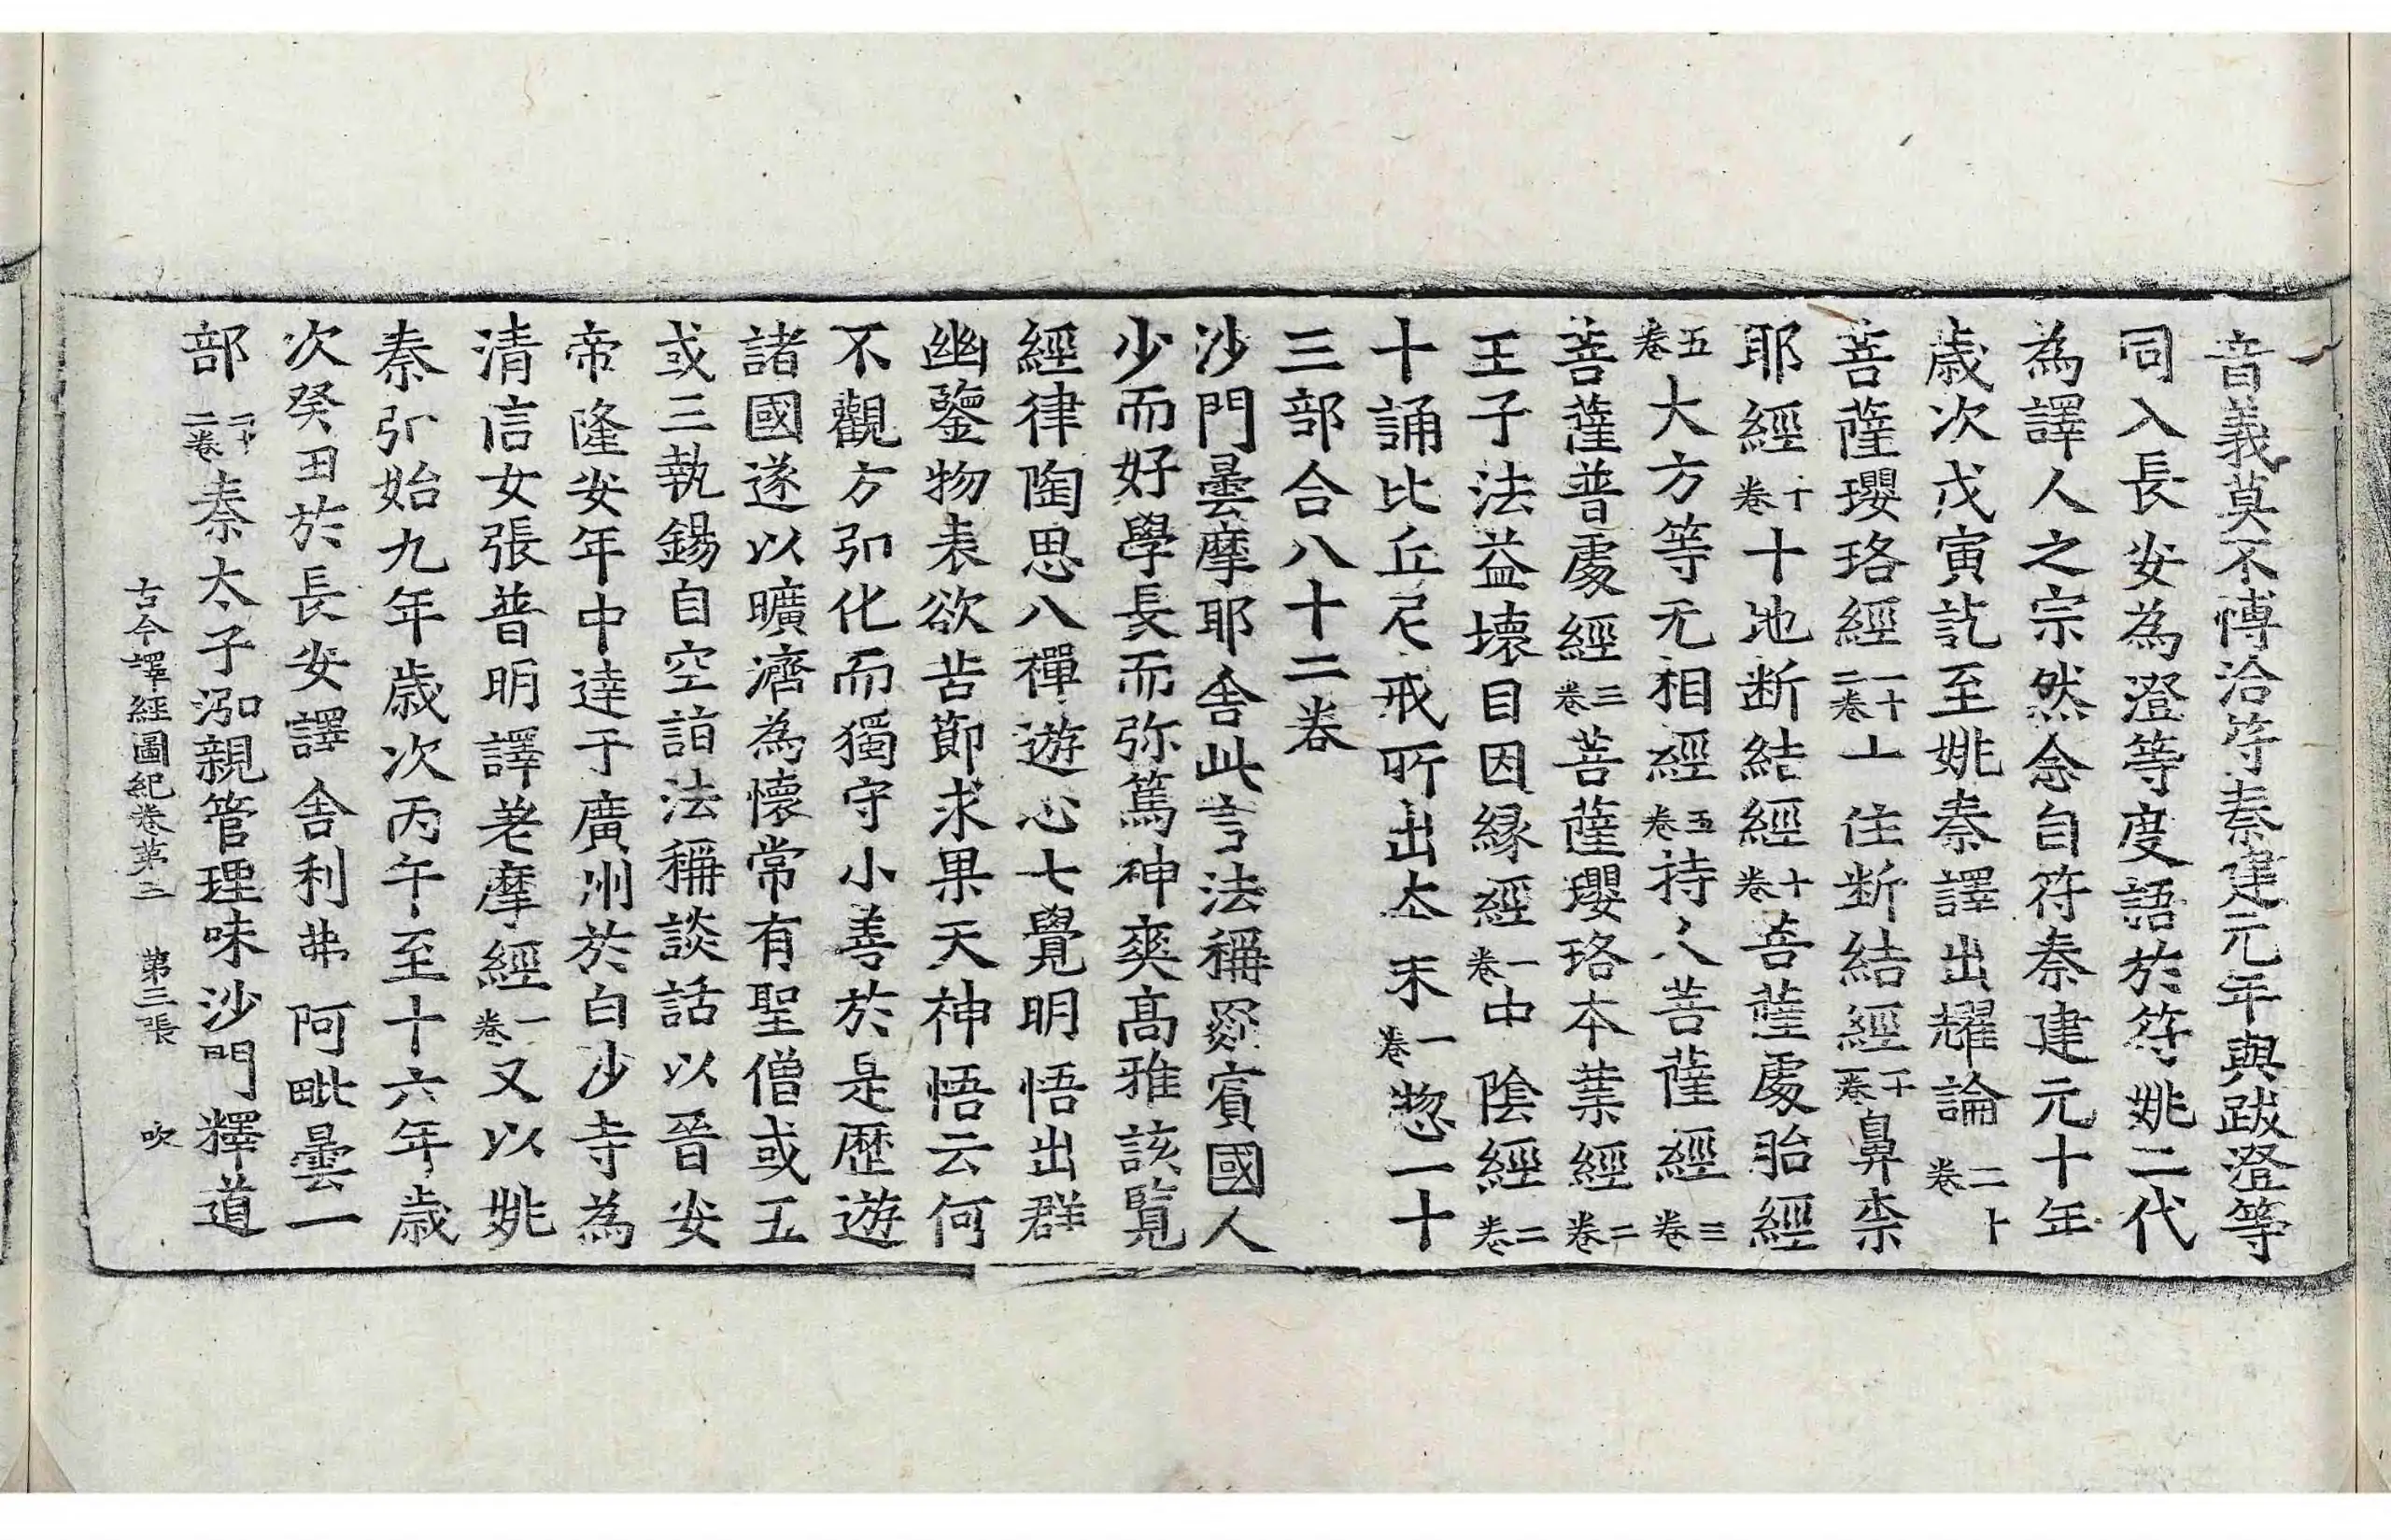 音義莫不博洽符秦建元年與跋澄等
同入長安為澄等度語於符姚二代
為譯人之宗然念自符秦建元十年
歲次戊寅訖至姚秦譯出耀論二十卷
菩薩瓔珞經一十二卷十住断結經十一卷鼻柰
耶經十卷十地断結經十卷菩薩處胎經
五卷大方等无相經五卷持人菩薩經三卷
菩薩普處經三卷菩薩瓔珞本業經二卷
王子法益壞目因緣經一卷中陰經二卷
十誦比丘尼戒所出本末一卷惣一十
三部合八十二卷
沙門曇摩耶舍此言法稱罽賓國人
少而好學長而弥篤神爽高雅該覧
經律陶思八禪遊心七覺明悟出群
幽鑒物表欲苦節求果天神悟云何
不觀方弘化而獨守小善於是歷遊
諸國遂以曠濟為懷常有聖僧或五
或三執錫自空詣法稱談話以晉安
帝隆安年中達于廣州於白沙寺為
清信女張普明譯差摩經一卷又以姚
秦弘始九年歲次丙午至十六年歲
次癸丑於長安譯舍利弗阿毗曇一
部二十二卷秦太子泓親管理味沙門釋道
古今譯經圖紀卷第三 第三張 吹